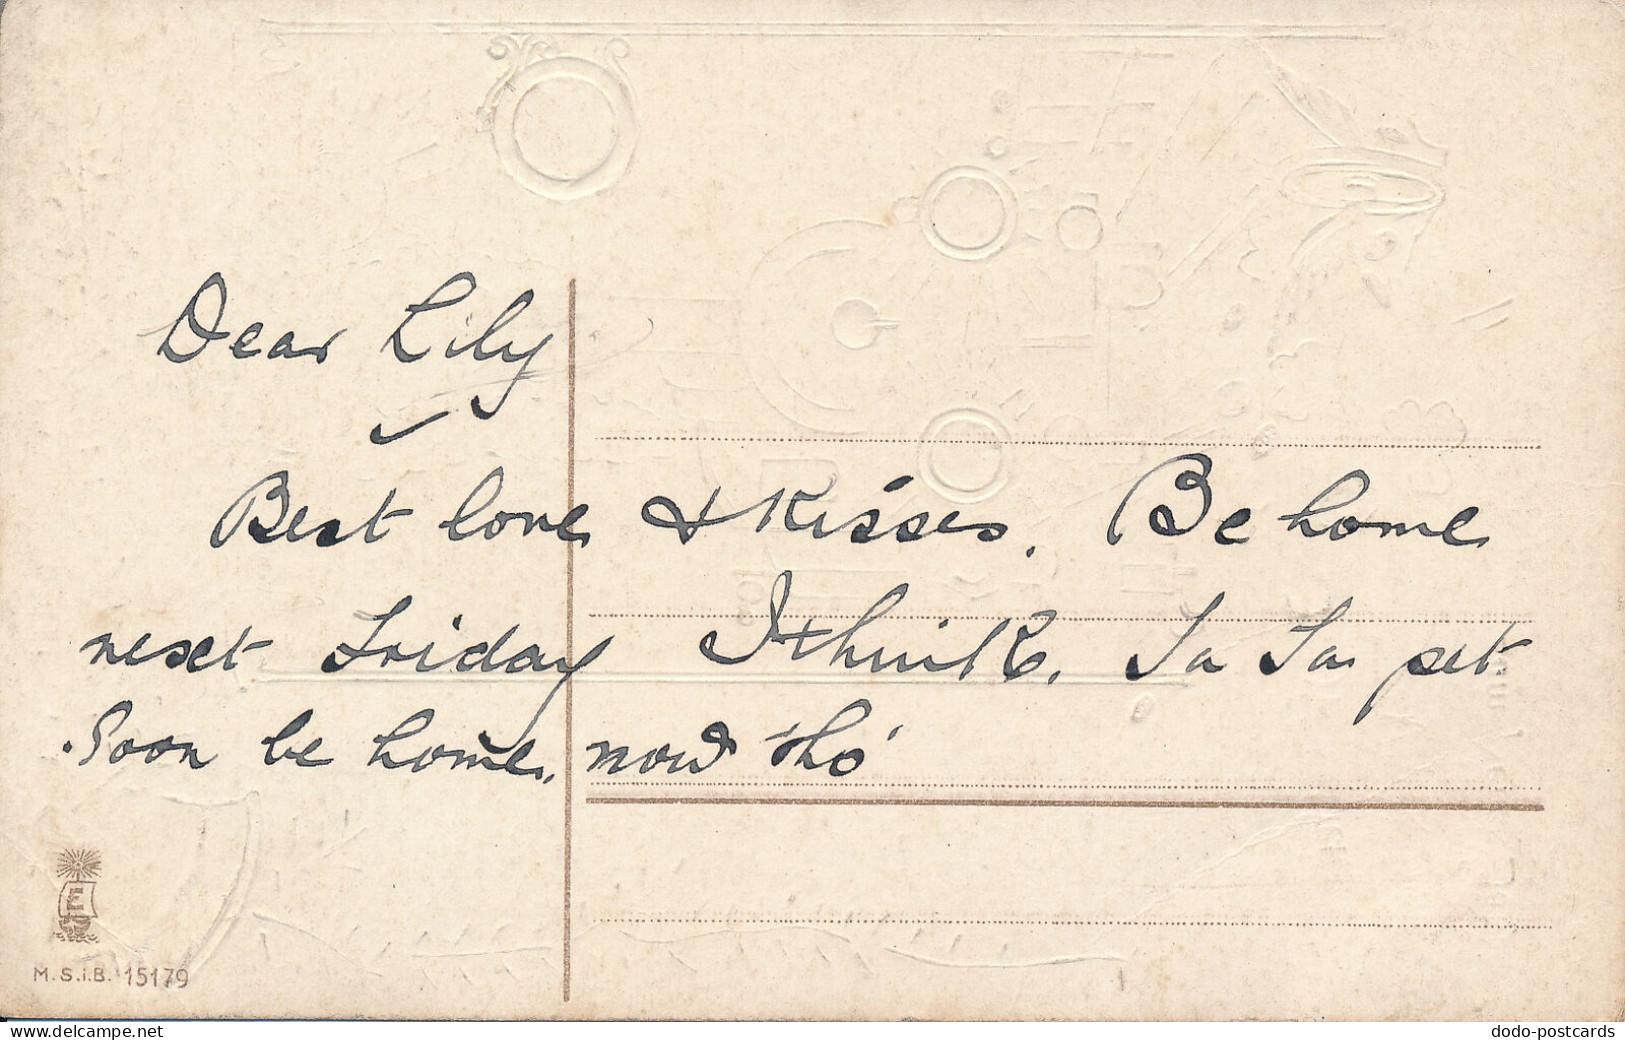 Dear Lily
Best love & Kisses. Be home
next Friday I think. Ta Ta pet
Soon be home now tho'
E
M.S.i.B. 15179
delcampe.net
dodo-postcards